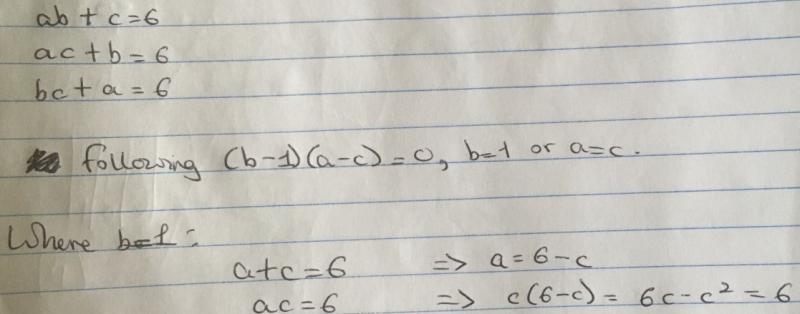 ab + c = 6
ac + b = 6
bc + a = 6
following (b-1)(a-c) = 0, b=1 or a=c.
Where b=1:
a+c = 6 => a = 6-c
ac = 6 => c(6-c) = 6c-c² = 6